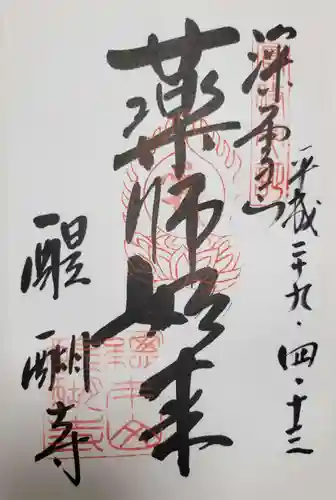 平成二十九・四・十三
深雪山
薬師如来
醍醐寺